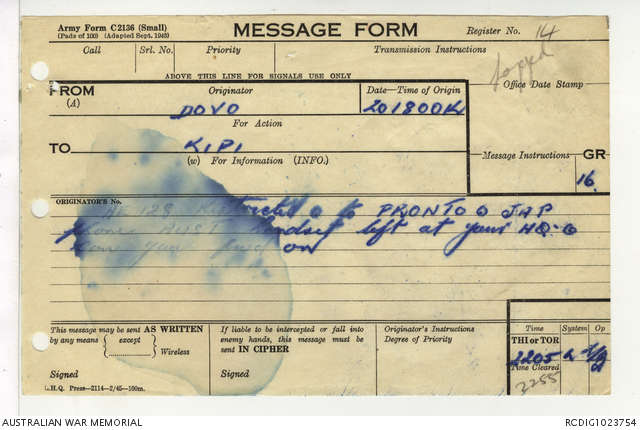 Army Form C2136 (Small)
(Pads of 100) (Adapted Sept. 1943)
MESSAGE FORM
Register No. 14
Call
Srl. No.
Priority
Transmission Instructions
logged
ABOVE THIS LINE FOR SIGNALS USE ONLY
Office Date Stamp
FROM
(A)
Originator
Date—Time of Origin
DOVO
201800K
For Action
TO
KIPI
(W) For Information (INFO.)
Message Instructions
GR
16
ORIGINATOR'S No.
128 to PRONTO O JAP
phone MUST handset left at your HQ O
your on
This message may be sent AS WRITTEN
by any means except
Wireless
Signed
If liable to be intercepted or fall into
enemy hands, this message must be
sent IN CIPHER
Signed
Originator's Instructions
Degree of Priority
Time
System
Op
THI or TOR
2205
Time Cleared
2255
G.H.Q. Press—2114—2/45—100m.
AUSTRALIAN WAR MEMORIAL
RCDIG1023754